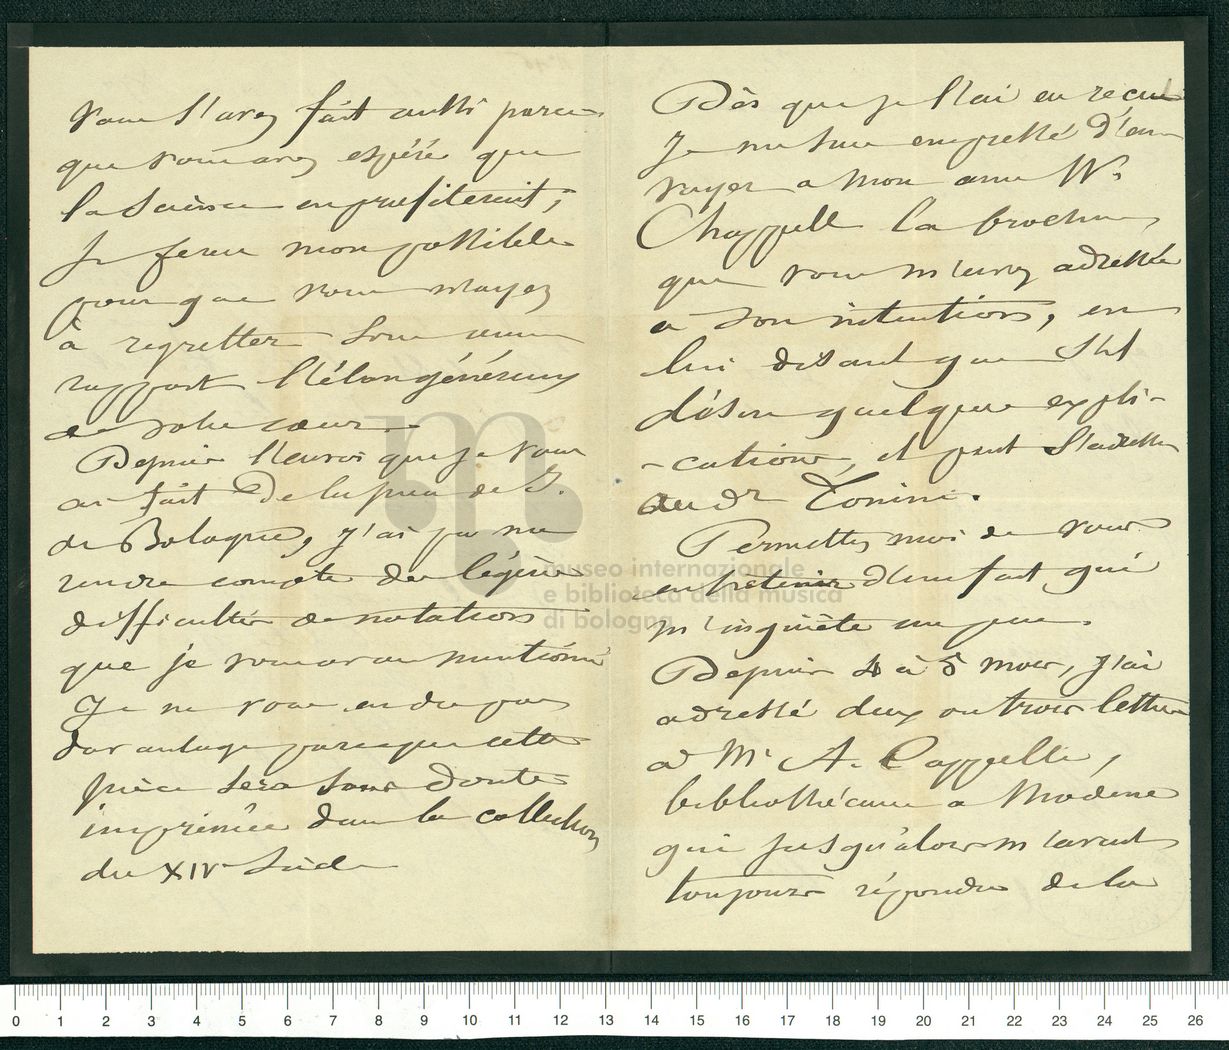 vous l'avez fait aussi parce
que vous avez espéré que
la Science en profiterait;
Je ferai mon possible
pour que vous n'ayez
à regretter sous aucun
rapport l'élan généreux
de votre cœur.
Depuis l'envoi que je vous
ai fait de la pièce de J.
de Bologne, j'ai pu me
rendre compte des légères
difficultés de notations
que je vous avais mentionné
Je ne vous en dis pas
davantage parceque cette
pièce sera sans doute
imprimée dans la collection
du XIVe Siècle
Dès que je l'ai eu reçue
je me suis empressé d'en
voyer a mon ami Wm
Chappell la brochure
que vous m'avez adressée
a son intention, en
lui disant que s'il
désire quelques expli-
-cations, il peut s'adresser
au dr Tonini.
Permettez moi de vous
entretenir d'un fait qui
m'inquiète un peu.
Depuis 4 à 5 mois, j'ai
adressé deux ou trois lettres
à Mr A. Cappelli,
bibliothécaire a Modène
qui jusqu'alors m'avait
toujours répondu de la
museo internazionale
e biblioteca della musica
di bologna
0 1 2 3 4 5 6 7 8 9 10 11 12 13 14 15 16 17 18 19 20 21 22 23 24 25 26